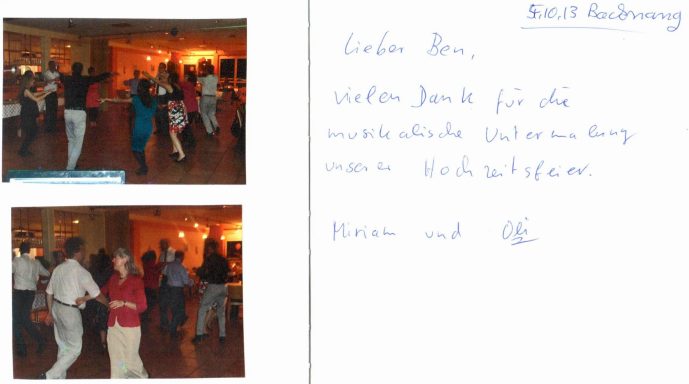 5.10.13 Backnang
Lieber Ben,
vielen Dank für die
musikalische Untermalung
unserer Hochzeitsfeier.
Miriam und Oli